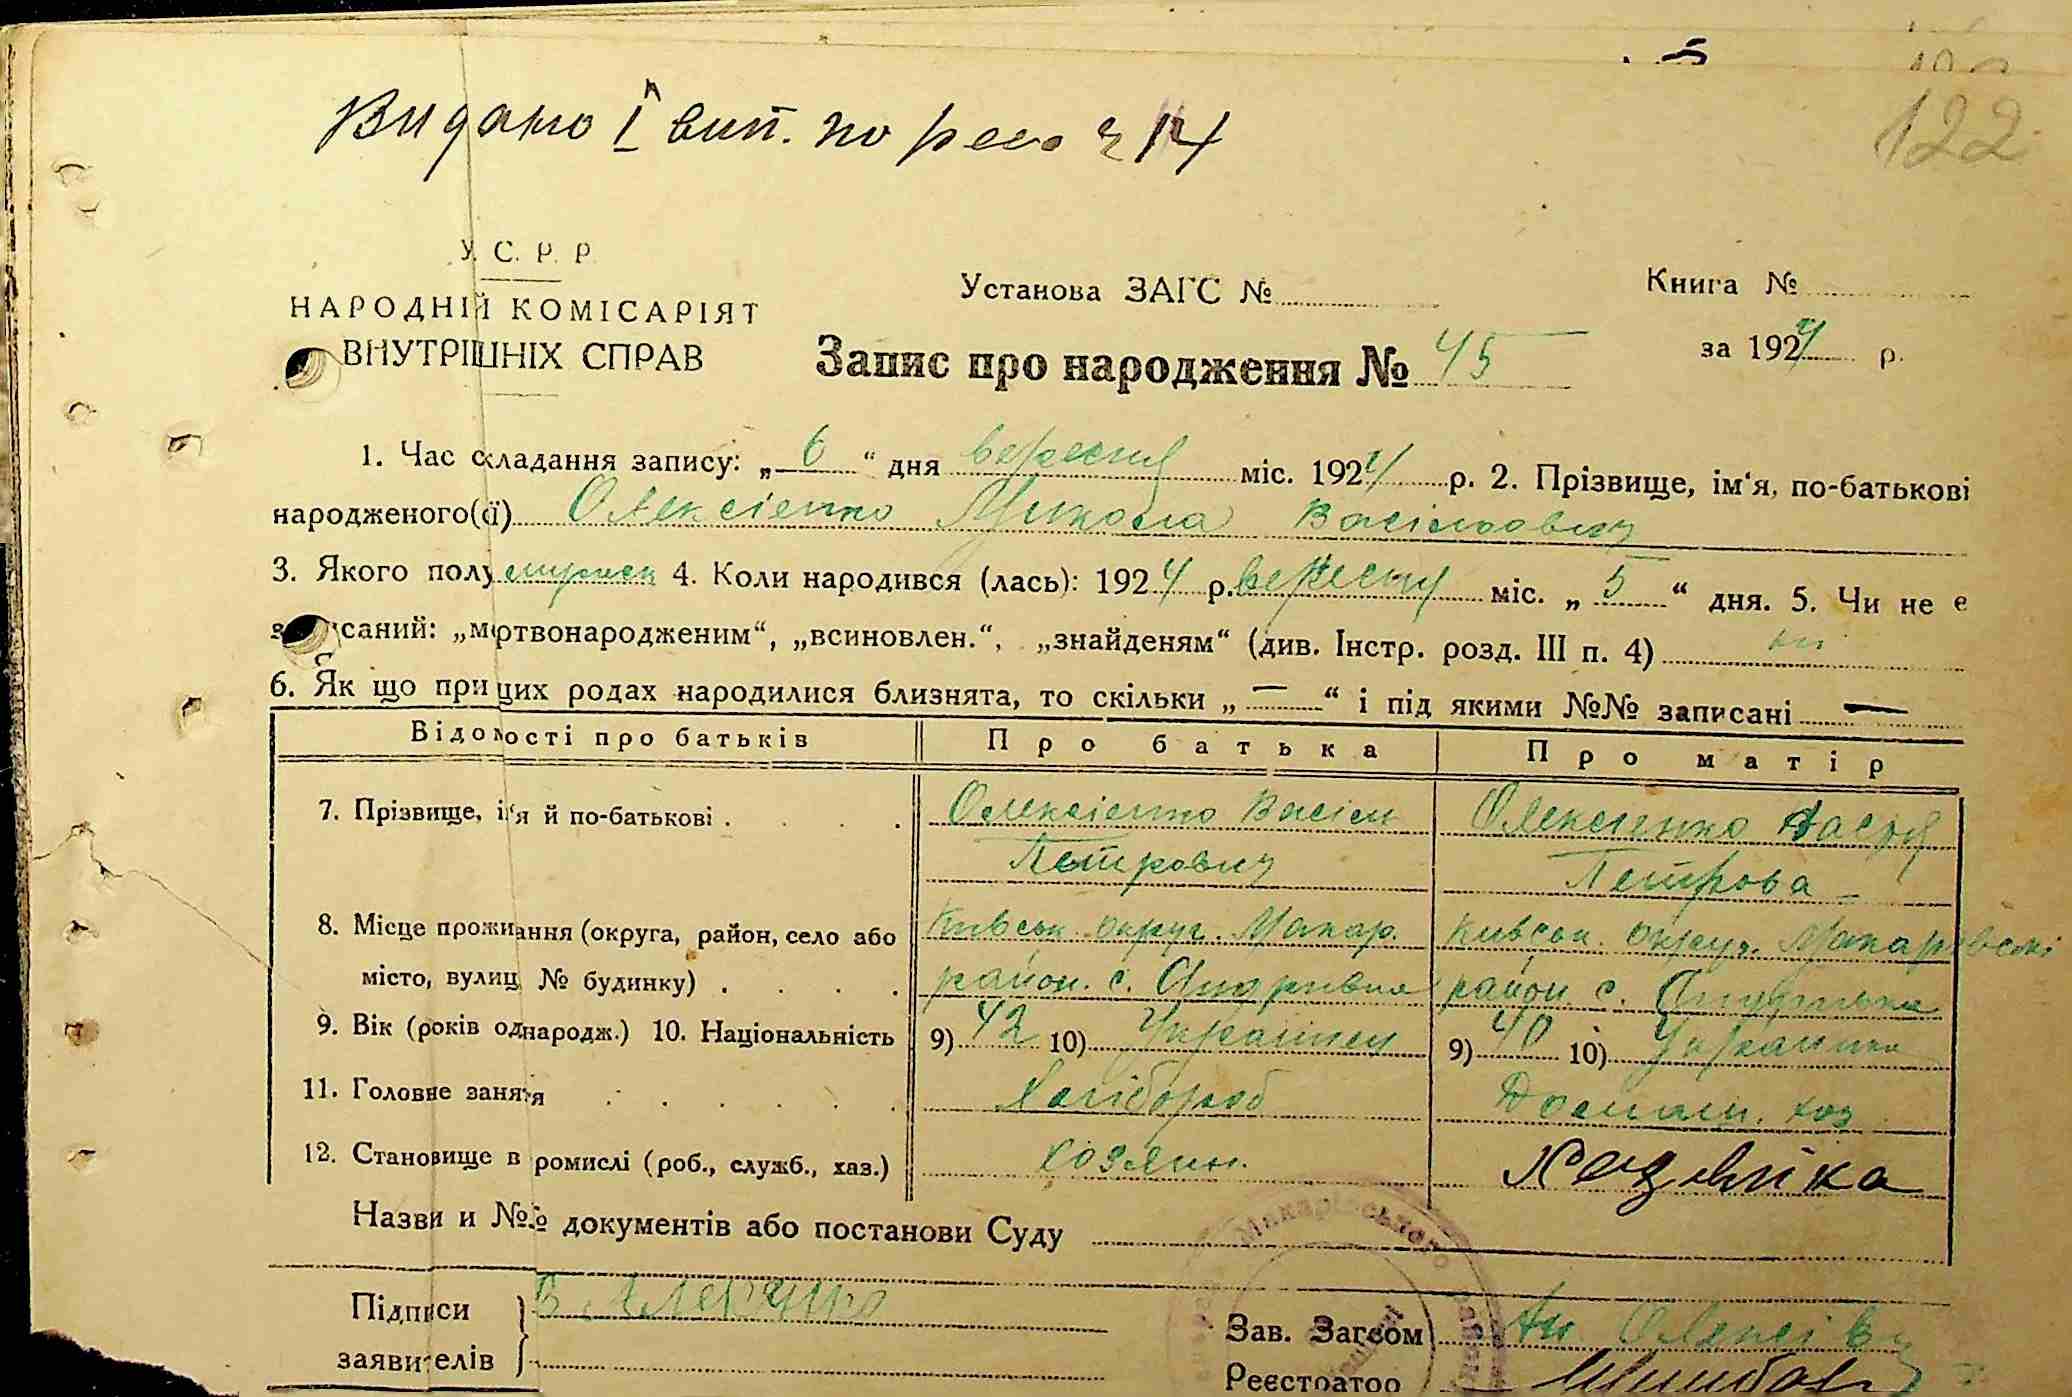 Видано І вип. по реє. 214
122
У. С. Р. Р.
НАРОДНІЙ КОМІСАРІЯТ
ВНУТРІШНІХ СПРАВ
Установа ЗАГС №
Книга №
за 1924 р.
Запис про народження № 45
1. Час складання запису: „ 6 “ дня вересня міс. 1924 р. 2. Прізвище, ім‘я, по-батькові
народженого(ої) Олексієнко Микола Васільович
3. Якого полу мужеск 4. Коли народився (лась): 1924 р. вересня міс. „ 5 “ дня. 5. Чи не є
записаний: „мертвонародженим“, „всиновлен.“, „знайденям“ (див. Інстр. розд. III п. 4) ні
6. Як що при цих родах народилися близнята, то скільки „ — “ і під якими №№ записані —
Відомості про батьків Про батька Про матір
7. Прізвище, ім‘я й по-батькові . . . . Олексієнко Васіль Олексиенко
Петрович Петрова
8. Місце проживання (округа, район, село або Київськ округ. Макар. Київськ. округ. Макарівські
місто, вулиц. № будинку) . . . . район. с. район с.
9. Вік (років однародж.) 10. Національність 9) 42 10) Українец 9) 40 10) Українка
11. Головне заняття . . . . . . Хлібороб Домашн. хоз
12. Становище в ромислі (роб., служб., хаз.) хозяин. Хазяйка
Назви и №№ документів або постанови Суду
Макарівського
Підписи
заявителів
Зав. Загсом
Реєстратор